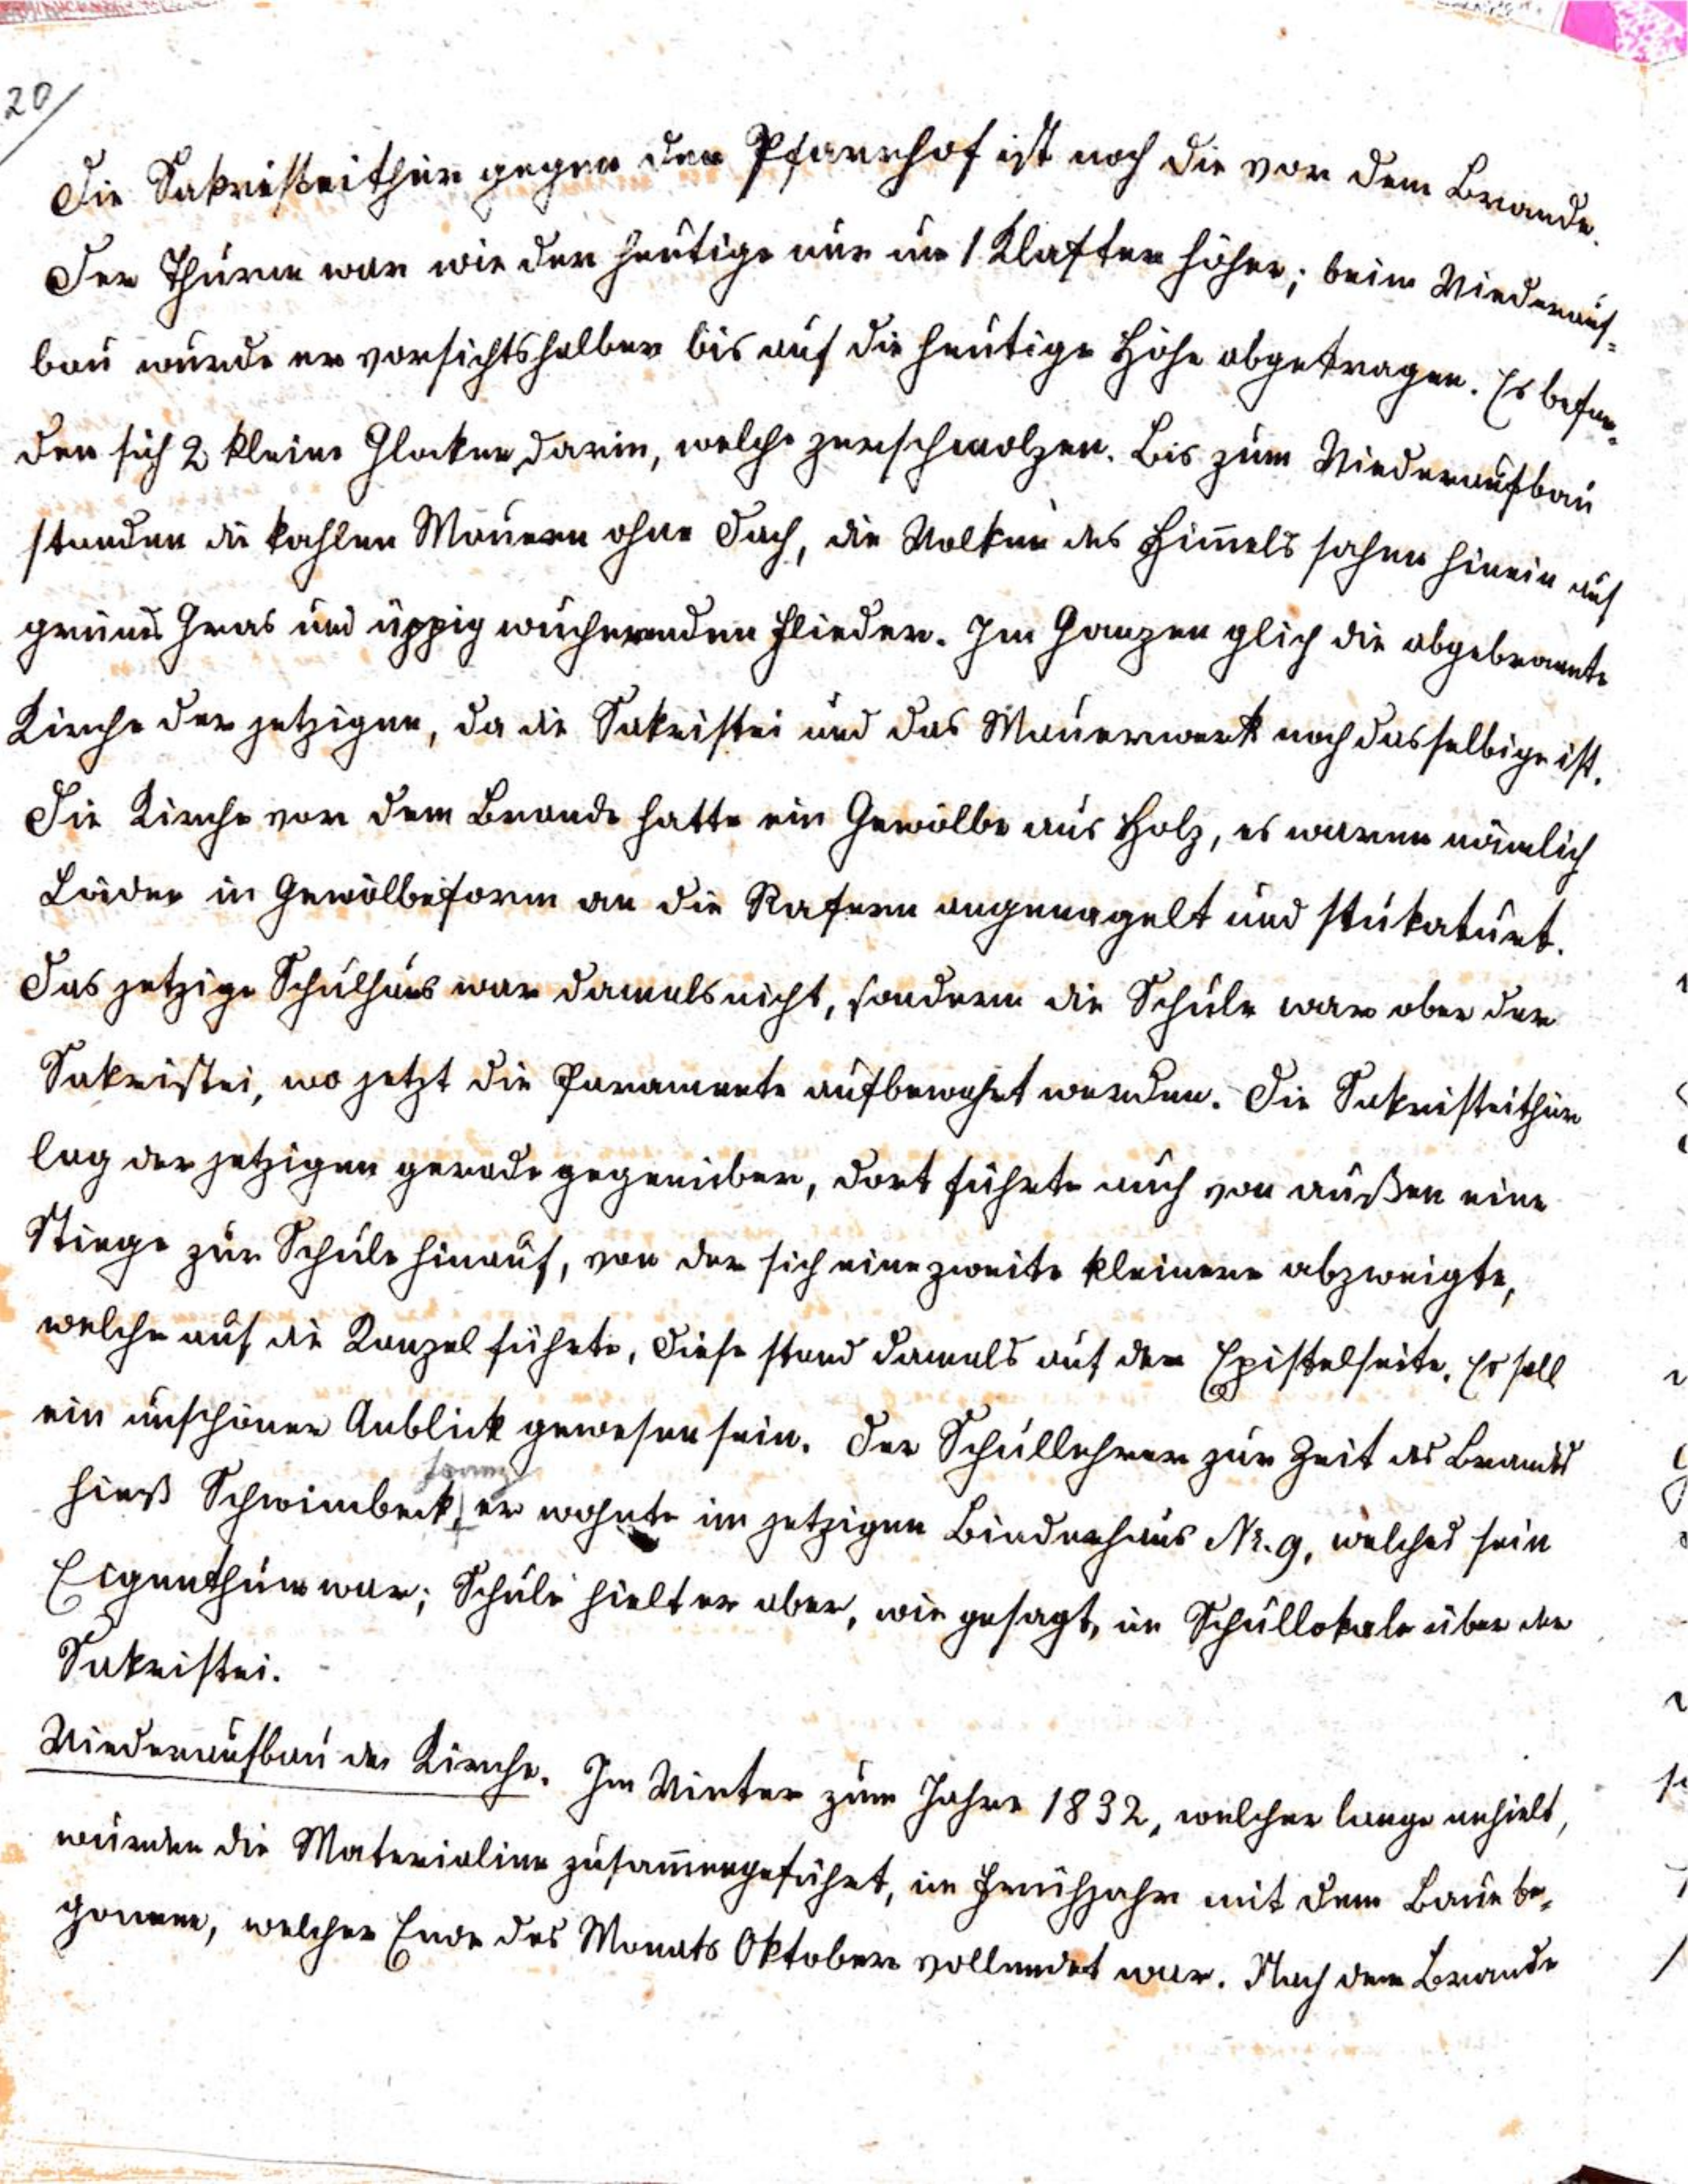 20/
Die Sakristeithür gegen den Pfarrhof ist noch die vor dem Brande.
Der Thurm war wie der heutige nur um 1 Klafter höher; beim Wiederauf-
bau wurde er vorsichtshalber bis auf die heutige Höhe abgetragen. Es befan-
den sich 2 kleine Glocken darin, welche zerschmolzen. Bis zum Wiederaufbau
standen die kahlen Mauern ohne Dach, die Wolken des Him̅els sahen hinein auf
grünes Gras und üppig wuchernden Flieder. Im Ganzen glich die abgebrannte
Kirche der jetzigen, da die Sakristei und das Mauerwerk noch dasselbige ist.
Die Kirche vor dem Brande hatte ein Gewölbe aus Holz, es waren nämlich
Läden in Gewölbeform an die Rafern angenagelt und stukaturt.
Das jetzige Schulhaus war damals nicht, sondern die Schule war ober der
Sakristei, wo jetzt die Paramente aufbewahrt werden. Die Sakristeithür
lag der jetzigen gerade gegenüber, dort führte auch von außen eine
Stiege zur Schule hinauf, von der sich eine zweite kleinere abzweigte,
welche auf die Kanzel führte, diese stand damals auf der Epistelseite. Es soll
ein unschöner Anblick gewesen sein. Der Schullehrer zur Zeit des Brandes
Franz
hieß Schwimbeck, er wohnte im jetzigen Binderhaus Nr. 9, welches sein
Eigenthum war; Schule hielt er aber, wie gesagt, im Schullokale über der
Sakristei.
Wiederaufbau der Kirche. Im Winter zum Jahre 1832, welcher lange anhielt,
wurden die Materialien zusam̅engeführt, im Frühjahr mit dem Baue be-
gonnen, welcher Ende des Monats Oktober vollendet war. Nach dem Brande